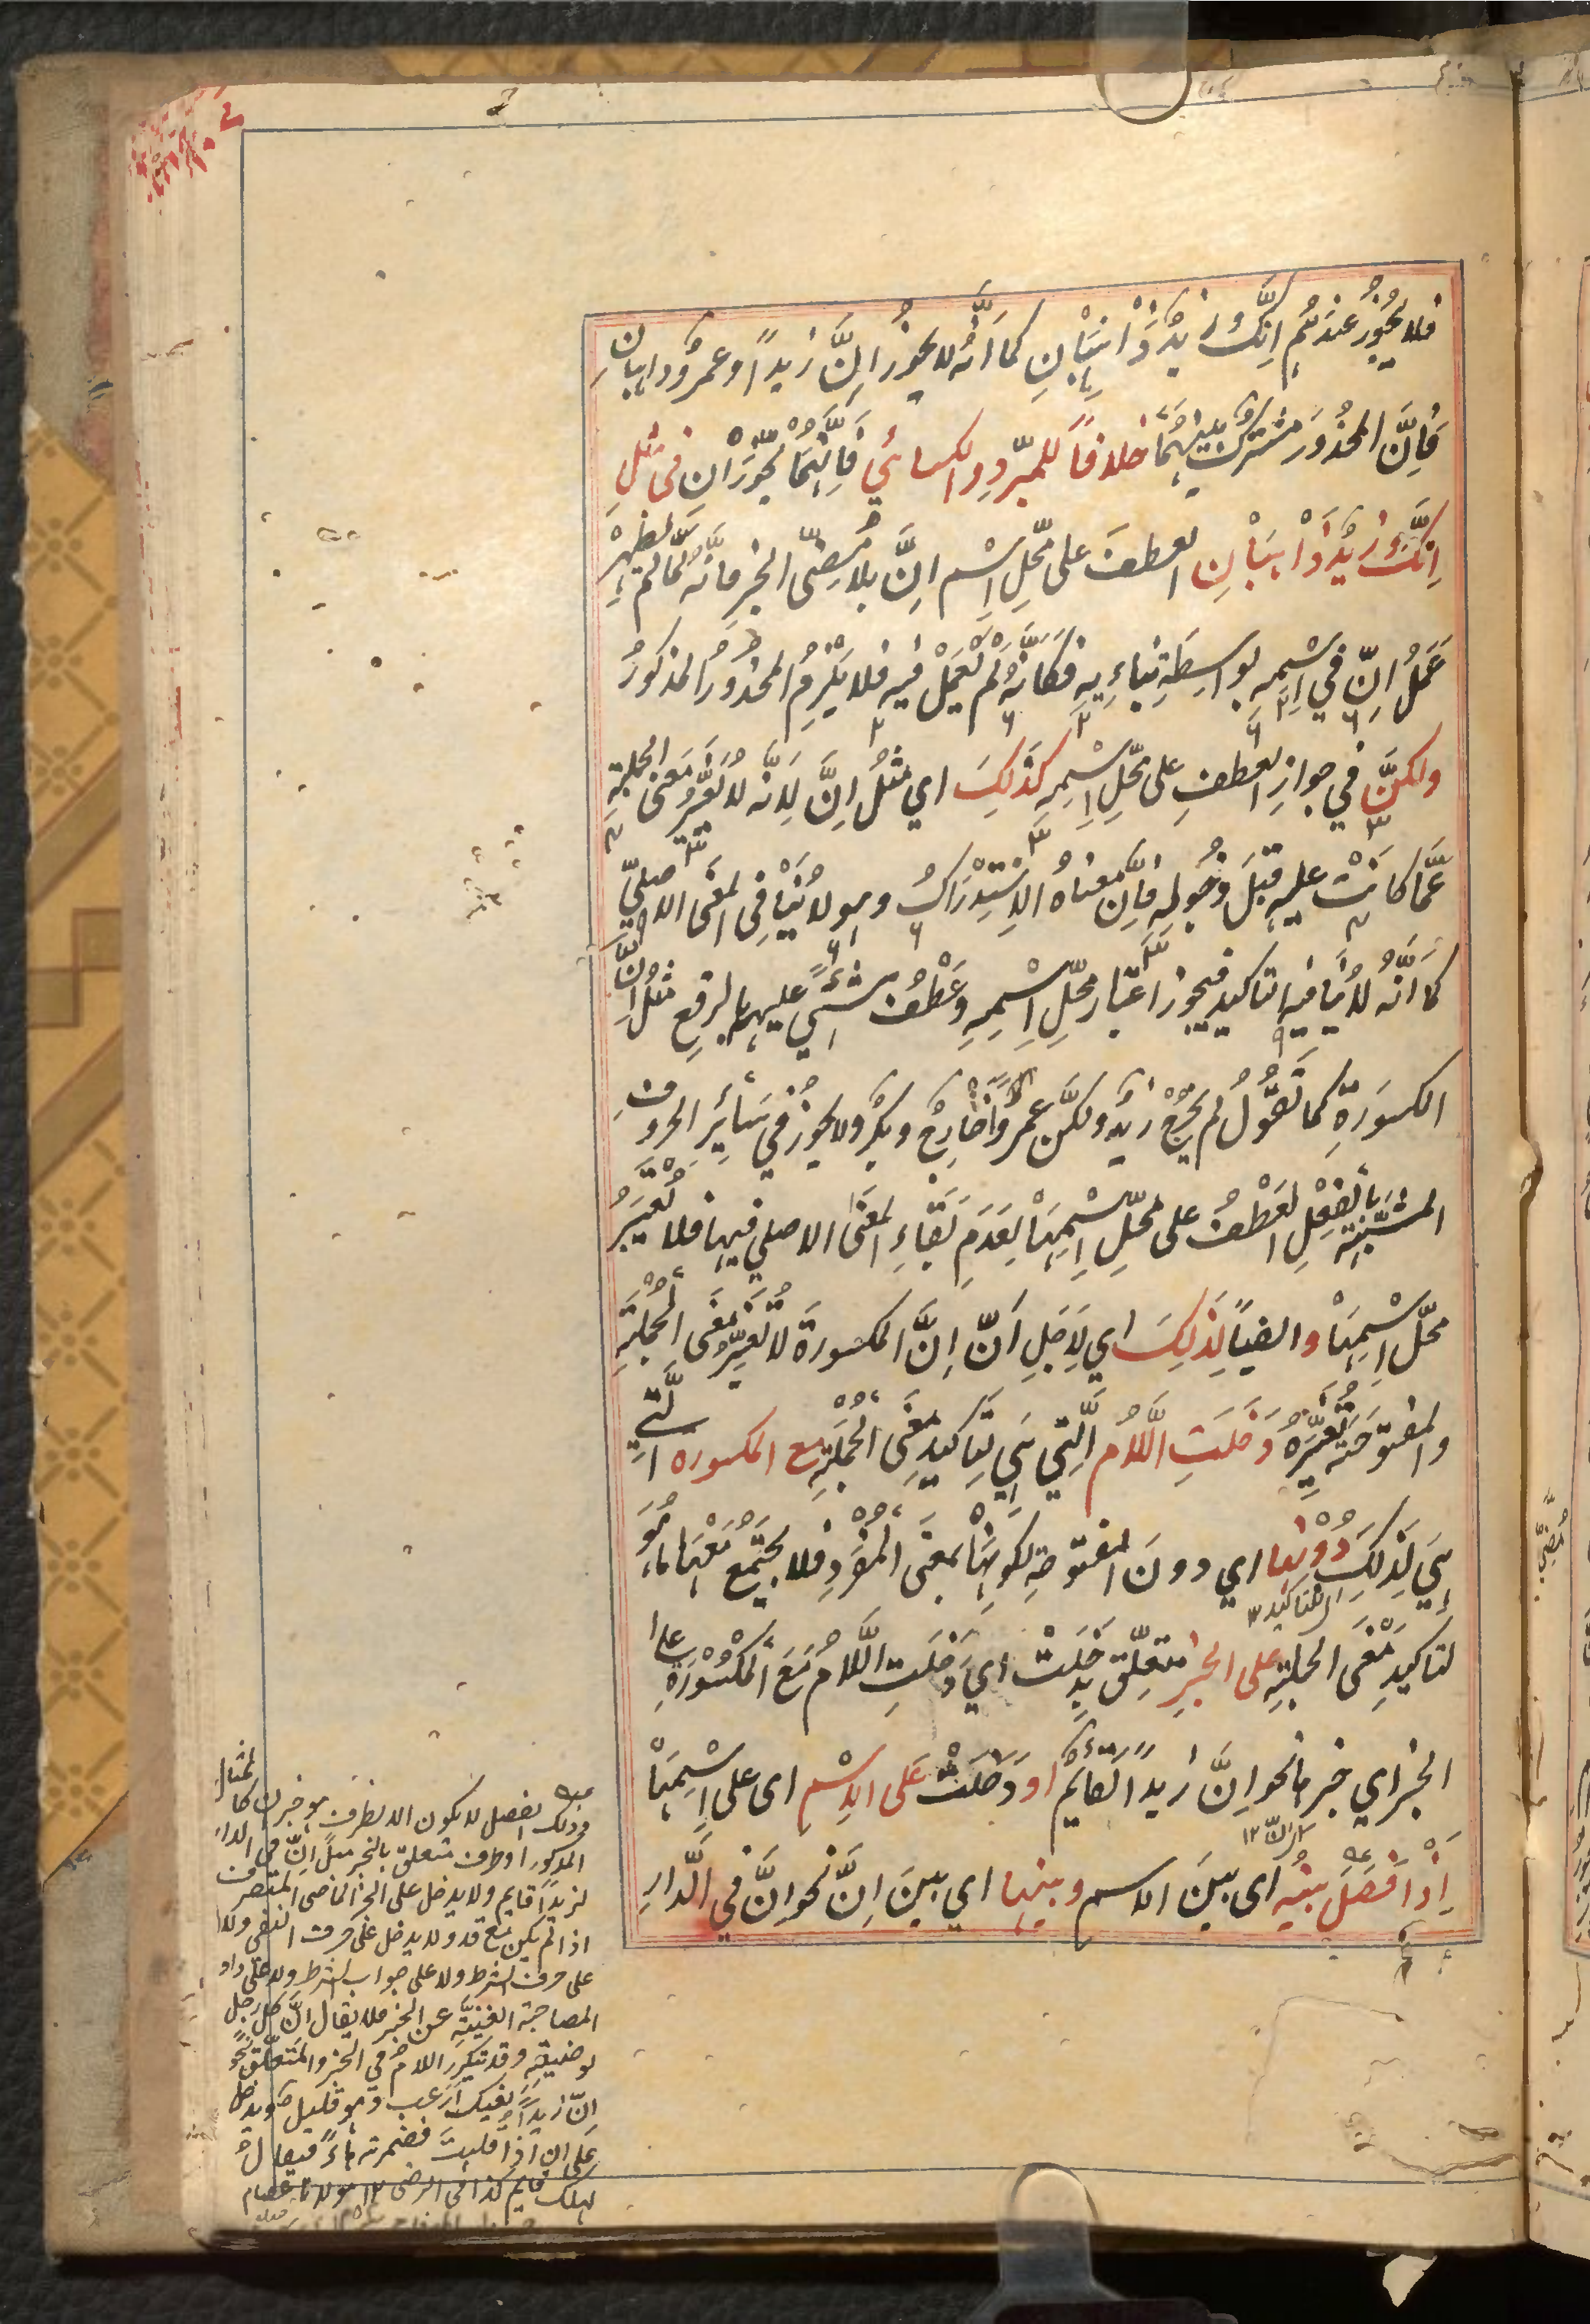 فلا يجوز عندهم اِنَّكَ وزيدٌ ذاهبانِ كما اَنَّه لا يجوز اِنَّ زيداً وعمروٌ ذاهبانِ
فَاِنَّ المحذورَ مشتركٌ بينهُما خلافاً للمبرّدِ والكسائيِ فَاِنَّهُمَا يُجَوِّزَانِ في مثلِ
اِنَّكَ وزيدٌ ذَاهِبَانِ العطفَ على محلِّ اِسْم اِنَّ بلا مُضِيّ الخبرِ فانه لَمّا لم يظهرْ
عَمَلُ اِنّ في اِسْمِهِ بواسِطَةِ بناءِهِ فَكَاَنَّهُ لم تَعْمَلْ فيه فلا يَلْزِمُ المحذورُ المذكورُ
ولكنَّ في جوازِ العطفِ على محلِّ اِسْمِهِ كَذَلِكَ اي مثلُ اِنَّ لِاَنَّه لا يُغَيِّرُ معنى الجملةِ
عَمَّا كانَتْ عليه قبلَ دخُولِهِ فاِنَّ معناهُ الاِسْتِدْرَاكُ وهو لا يُنَافِى المعْنَى الاصليّ
كما اَنَّهُ لا يُنافيه التاكيد فيجوز اعتبار محلّ اِسْمِهِ وعَطْفُ شَيْءٍ عليه بالرفعِ مثلُ اِنَّ
المكسورةِ كما تَقُوْلُ لم يَخْرُجْ زيدٌ ولكنَّ عمرواً خَارِجٌ وبكرٌ ولا يجوزُ في سَائِرِ الحروفِ
المشبّهةِ بِالْفِعْلِ العَطْفُ على محلِّ اِسْمِهَا لِعَدَمِ بَقَاءِ المعْنَى الاصلي فيها فلا يُعْتَبَرُ
محلّ اِسْمِهَا وايضاً لِذَلِكَ اي لِاَجَلِ اَنّ اِنَّ المكسورةَ لا تُغَيِّرُ معْنَى الْجُمْلَةِ
والمفتوحَةَ تُغَيِّرُهُ دَخَلَتِ اللَّامُ الَّتِي هي لِتَاكيدِ معْنَى الْجُمْلَةِ مع المكسورة الَّتي
هِيَ لذلِكَ دُوْنَها اي دونَ المفتوحةِ لكونِهَا بمعنَى الْمُفْرَدِ فلا يجتمعُ معَهَا ما هُوَ
اي للتاكيد ١٢
لتاكيدِ معْنَى الجملةِ على الخبرِ متعلّق بِدَخَلَتْ اي دَخَلَتِ اللَّامُ مَعَ الْمَكْسُوْرَةِ على
الخبرِ اي خبرها نحو اِنَّ زيداً لَقَائِمٌ او دَخَلَتْ عَلى الاِسْمِ اى على اِسْمِهَا
اِذَا فُصِلَ بينَه اى بينَ الاسم وبينَها اي بينَ اِنَّ نحو اِنَّ في الدَّارِ
وذلك الفصل لا يكون الا بظرف هو خبر ان كالمثال
المذكور او ظرف متعلق بالخبر مثل اِنّ في الدار
لزيداً قايم ولا يدخل على الخبر الماضى المتصرف
اذا لم يكن مع قد ولا يدخل على حرف النفى ولا
على حرف الشرط ولا على جواب الشرط ولا على واو
المصاحبة المغنية عن الخبر فلا يقال اِنَّ كل رجل
لوضيعته وقد تتكرر اللام في الخبر والمتعلق نحو
اِنّ زيداً لفيك لراغب وهو قليل وقد يدخل
على ان اذا قلبت همزته هاءً فيقال
لهنك قايم كذا في الرضى ١٢ مولانا عصام
مُضِيّ